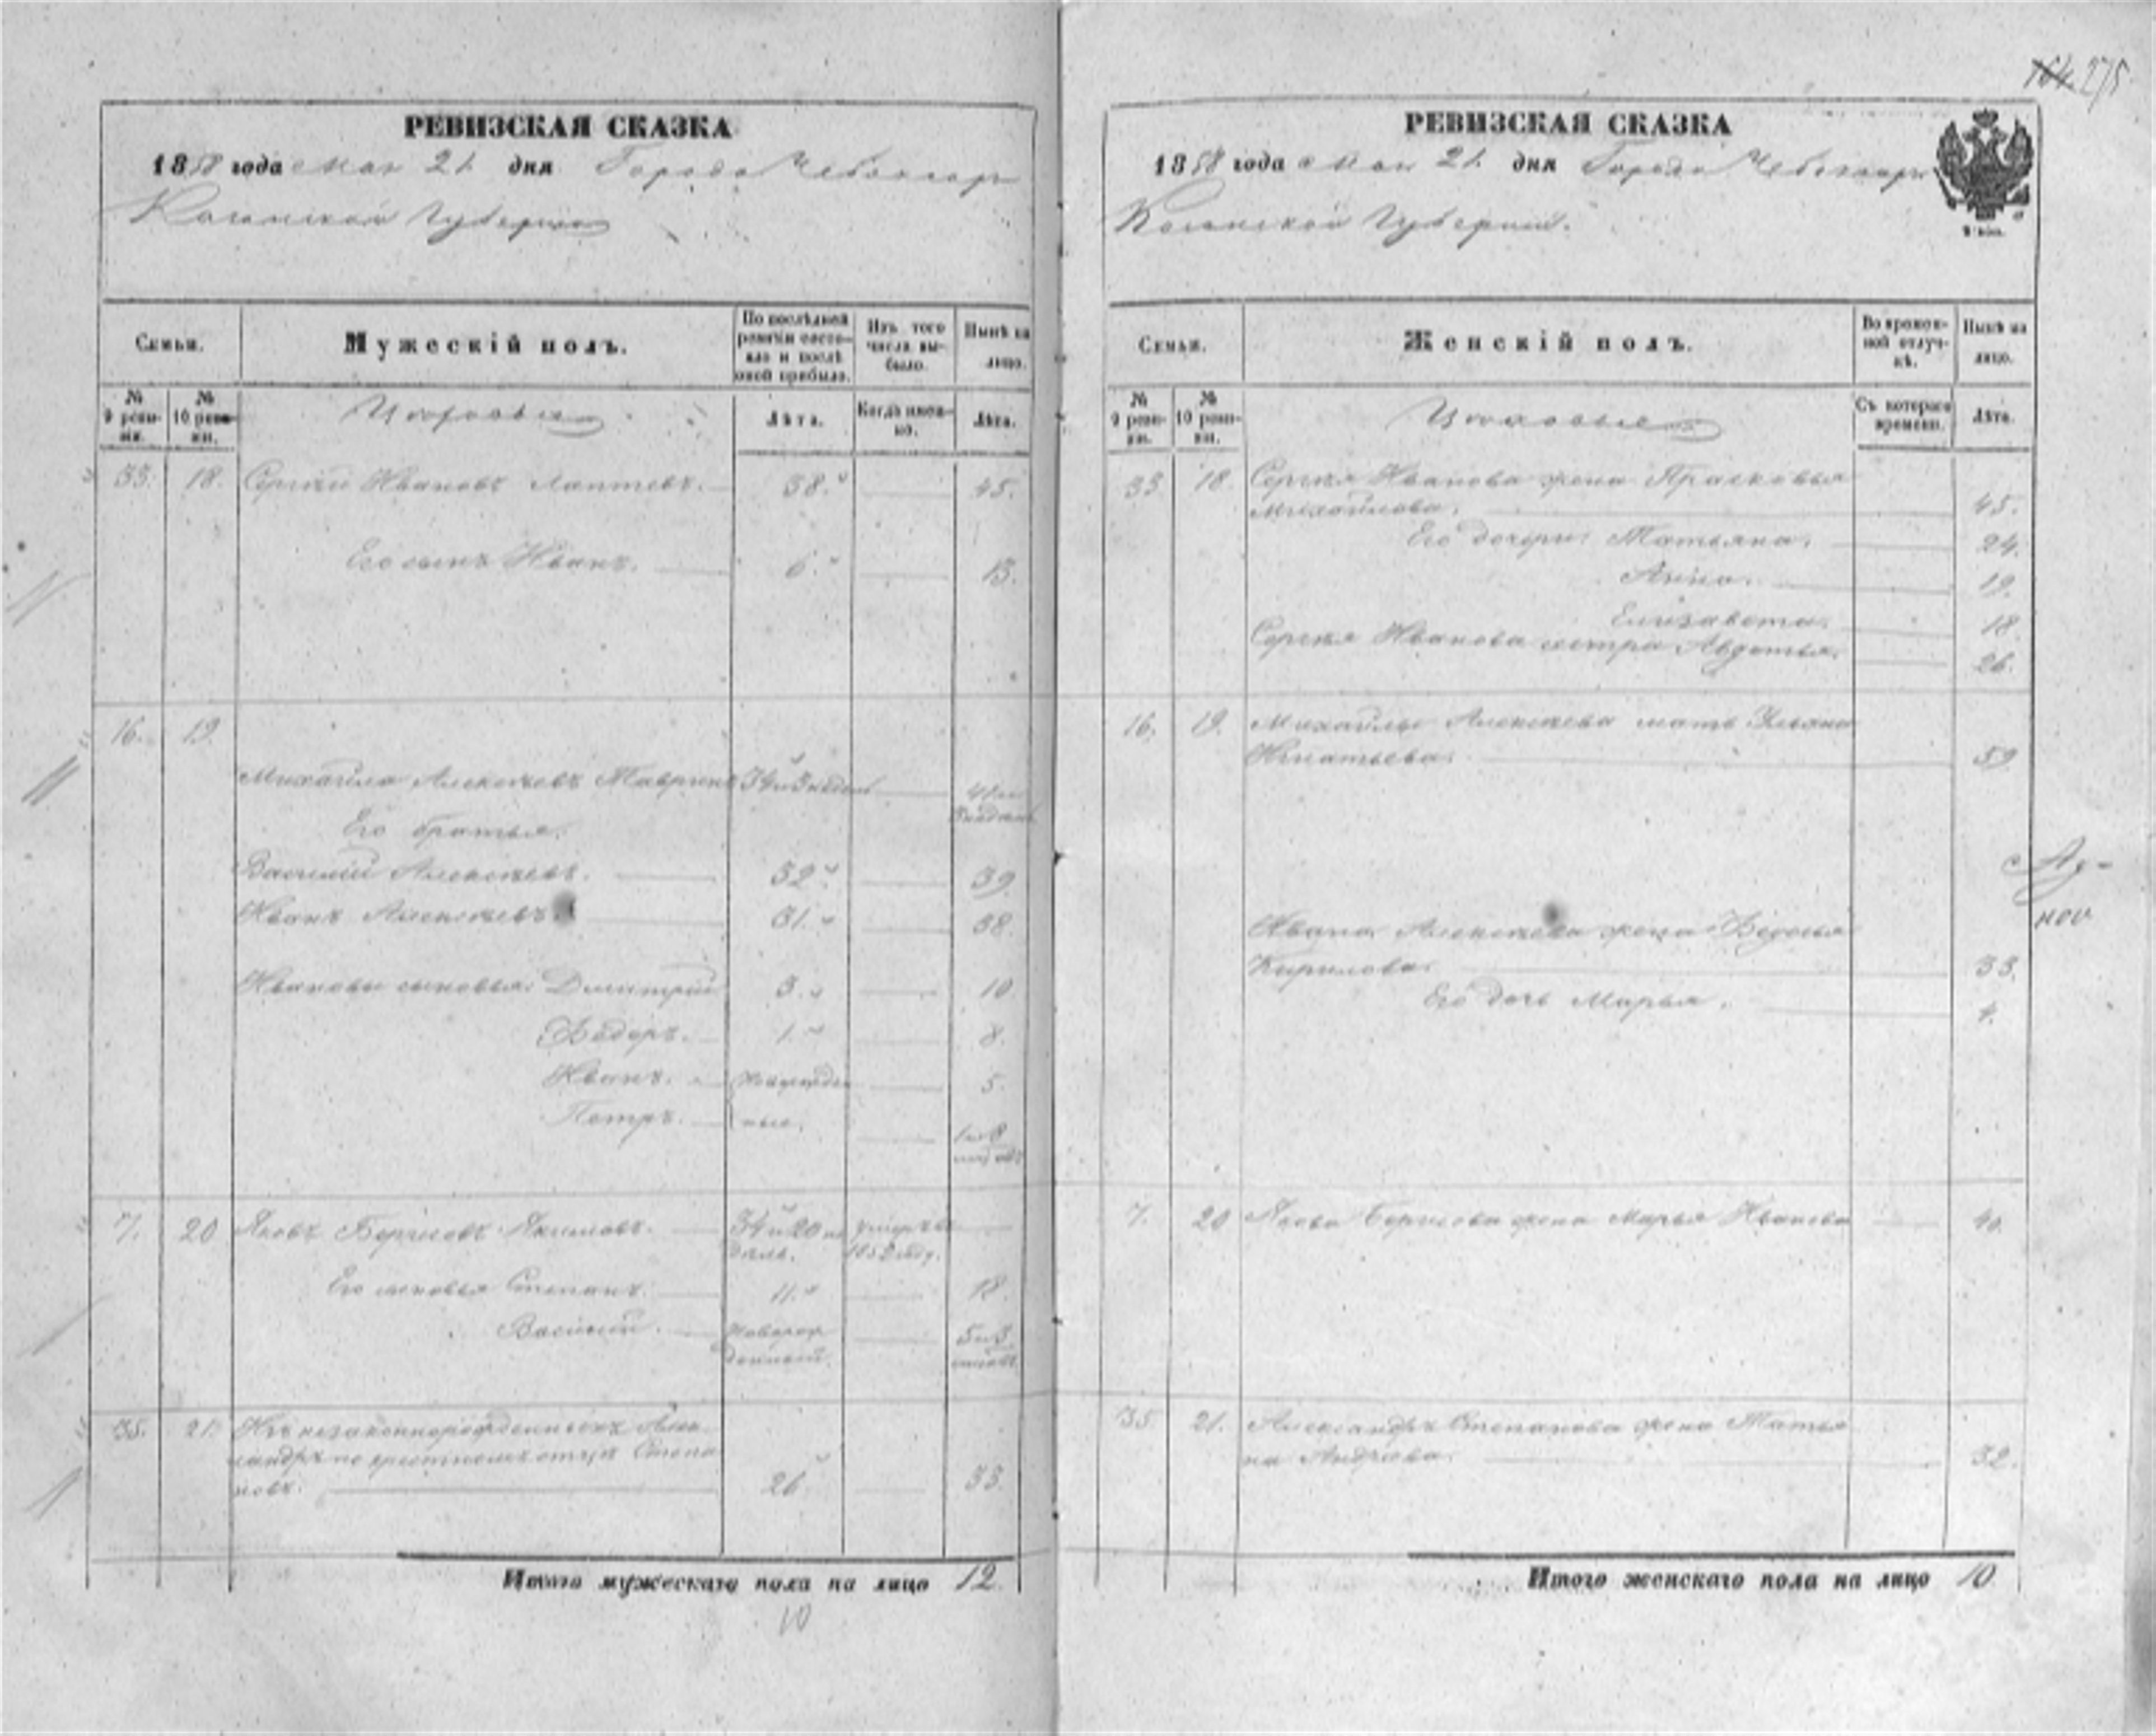 275
РЕВИЗСКАЯ СКАЗКА
1858 года Мая 21 дня Города Чебоксар
Казанской Губернии
Семьи.
Мужескій полъ.
По послѣдней ревизіи состояло и послѣ оной прибыло.
Изъ того числа выбыло.
Нынѣ на лицо.
№ 9 ревизіи.
№ 10 ревизіи.
Цеховые
Лѣта.
Когда именно.
Лѣта.
33. 18. Сергѣй Ивановъ Лаптевъ. 38. 45.
Его сынъ Иванъ. 6. 13.
16. 19.
Михайла Алексѣевъ 34 и 3 недѣль 41 и
3 недѣль
Его братья.
Василий Алексѣевъ. 32. 39.
Иванъ Алексѣевъ 31. 38.
Ивановы сыновья: Дмитрий 3. 10
Ѳедоръ. 1. 8.
Иванъ. 5.
Петръ. ные. 1 и 8
7. 20 Яковъ Борисовъ Якимовъ. 34 и 20 не умеръ въ
дѣль. 1852 году.
Его сыновья Степанъ. 11. 18.
Василий. новорож 5 и 3
денный.
35. 21. Изъ незаконнорожденныхъ Алек
сандръ по крестному отцу Степа
новъ. 26. 33
Итого мужескаго пола на лицо 12.
10
РЕВИЗСКАЯ СКАЗКА
1858 года Мая 21 дня Города Чебоксар
Казанской Губернии.
Семьи.
Женскій полъ.
Во временной отлучкѣ.
Нынѣ на лицо.
№ 9 ревизіи.
№ 10 ревизіи.
Цеховые
Съ котораго времени.
Лѣта.
33 18. Сергѣя Иванова жена Прасковья
Михайлова. 45.
Его дочери: Татьяна. 24.
Анна. 19.
Елизавета. 18.
Сергѣя Иванова сестра Авдотья. 26.
16. 19. Михайлы Алексѣева мать Ульяна
Игнатьева. 59
Ивана Алексѣева жена Ѳедосья
Кирилова. 33.
Его дочь Марья. 4.
7. 20 Якова Борисова жена Марья Иванова 40.
35 21. Александръ Степанова жена Татья
на Андреева. 32.
Итого женскаго пола на лицо 10.